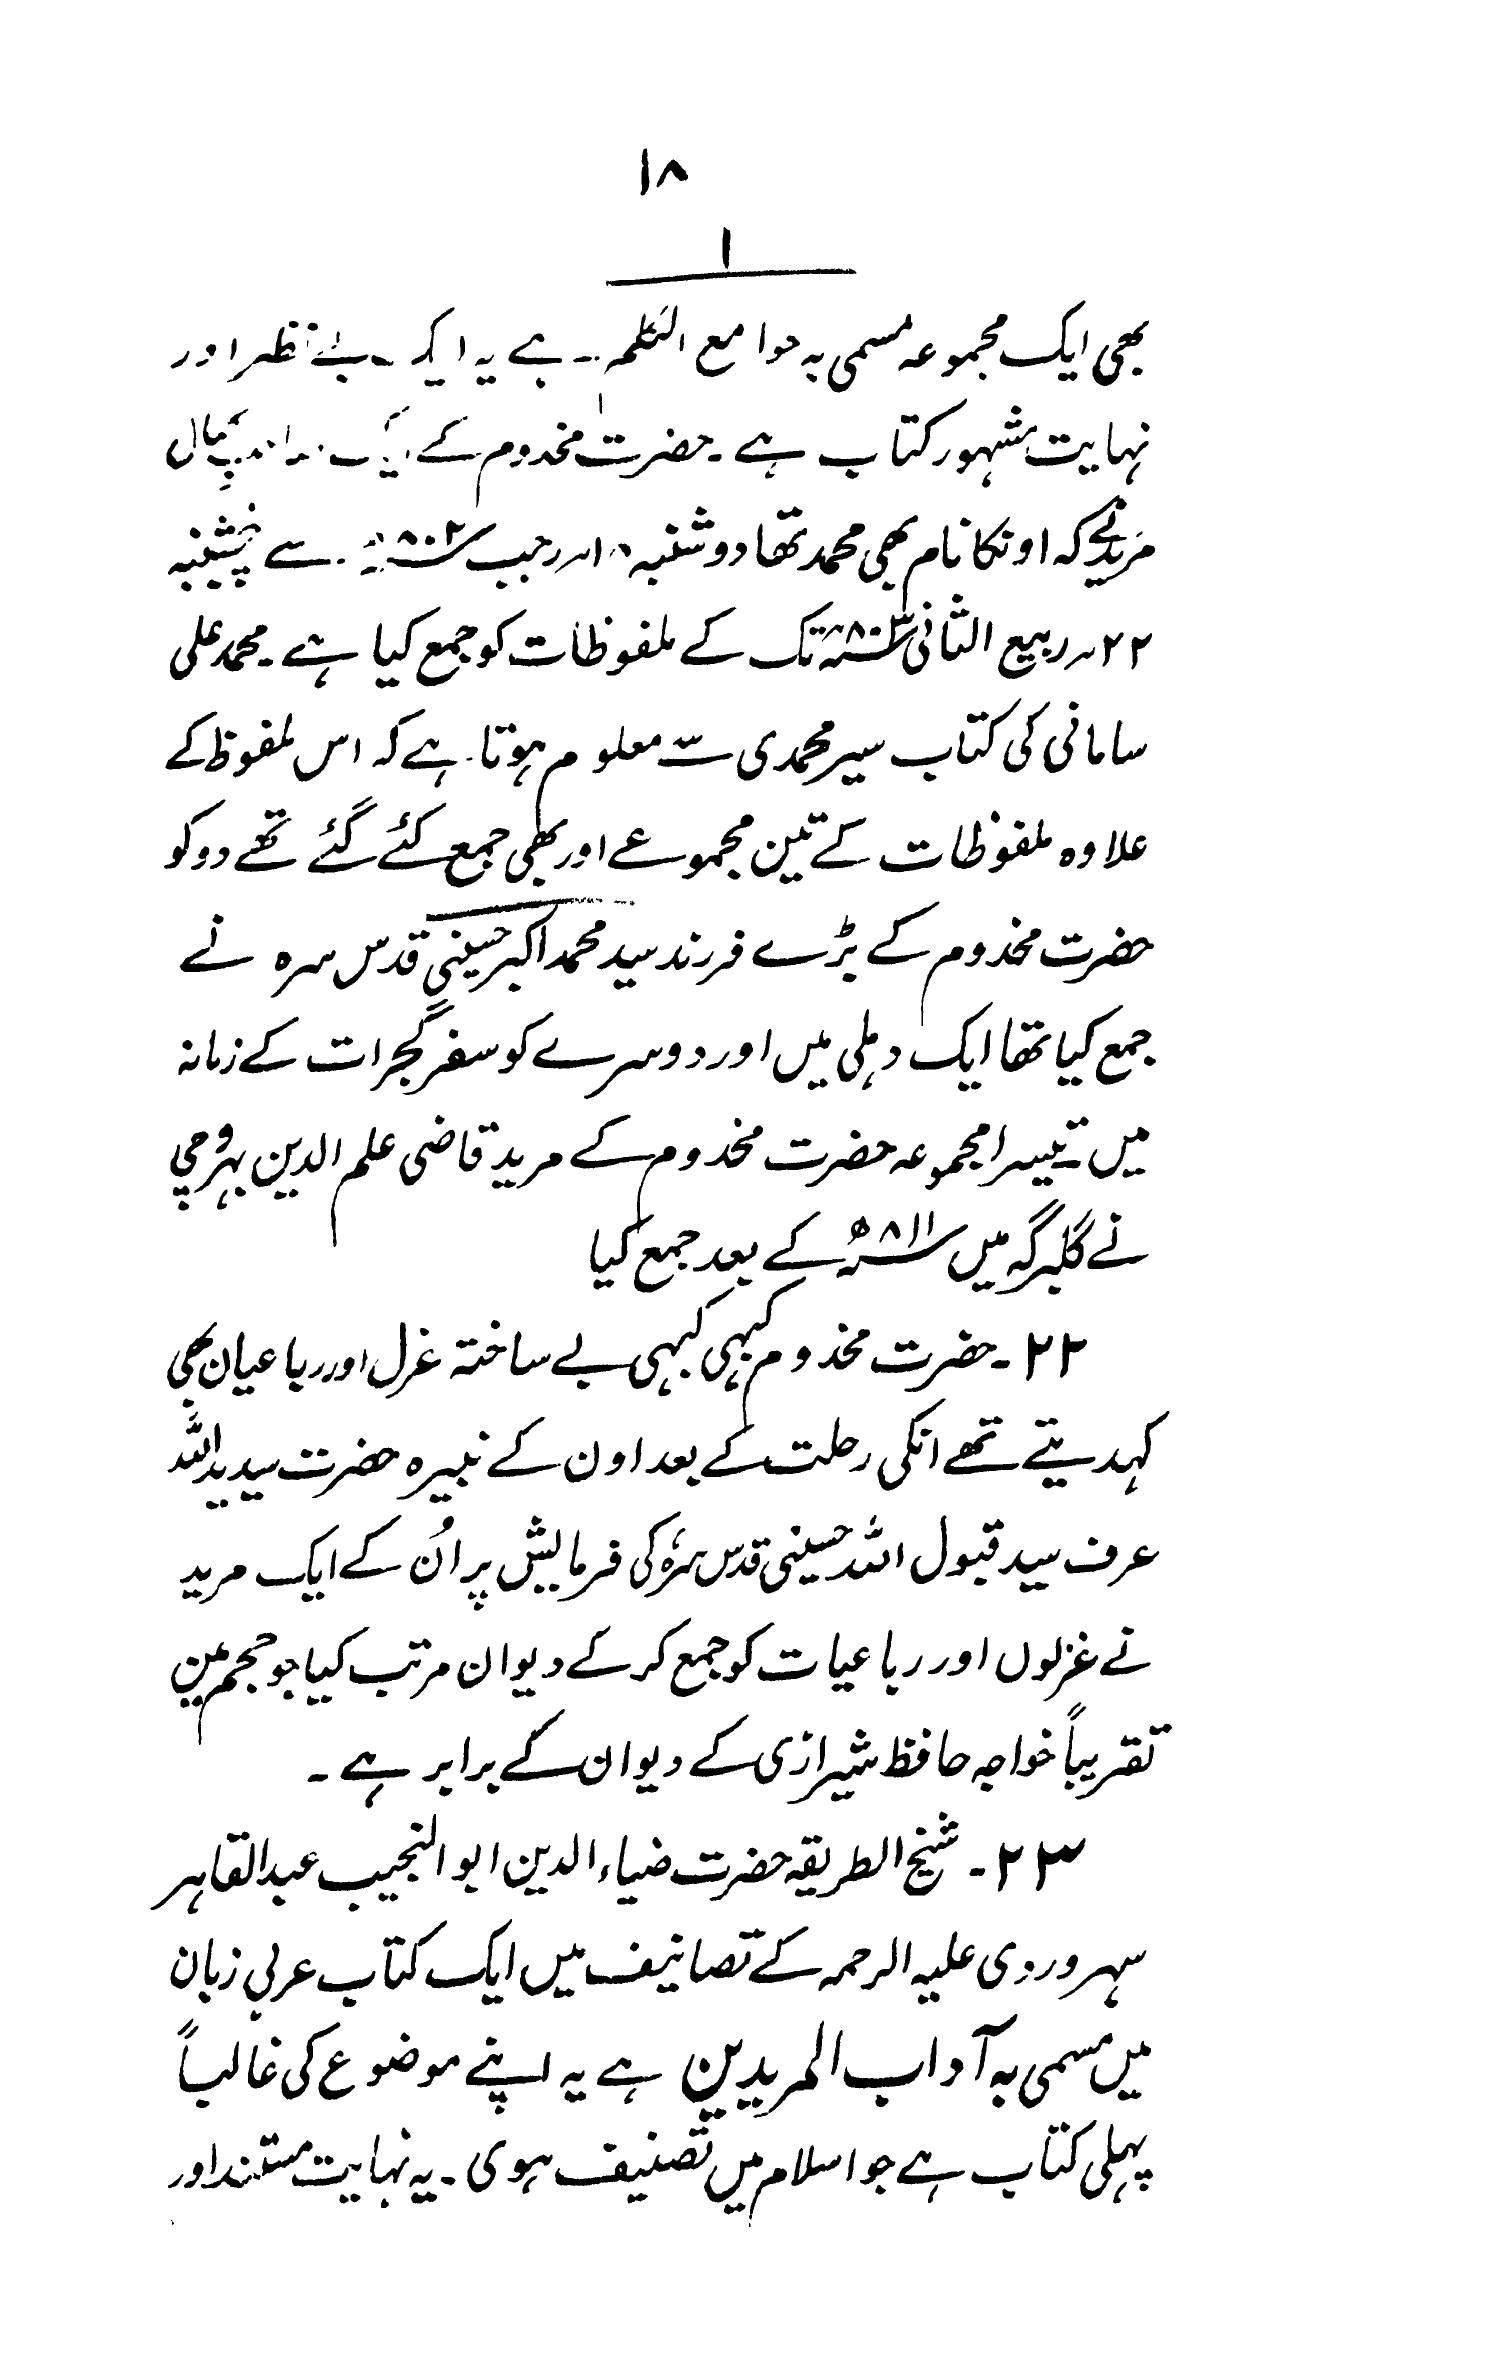 ۱۸
ا
بھی ایک مجموعہ مسمی بہ جوامع الکلم ہے یہ ایک بے نظیر اور
نہایت مشہور کتاب ہے ۔ حضرت مخدوم کے ایک
مرید نے کہ اونکا نام بھی محمد تھا دوشنبہ ۱۸؍ رجب ۸۰۲ھ سے پنجشنبہ
۲۲؍ ربیع الثانی ۸۰۳ھ تک کے ملفوظات کو جمع کیا ہے ۔ محمد علی
سامانی کی کتاب سیر محمدی سے معلوم ہوتا ہے کہ اس ملفوظ کے
علاوہ ملفوظات کے تین مجموعے اور بھی جمع کئے گئے تھے دو کو
حضرت مخدوم کے بڑے فرزند سید محمد اکبر حسینی قدس سرہ نے
جمع کیا تھا ایک دہلی میں اور دوسرے کو سفر گجرات کے زمانہ
میں ۔ تیسرا مجموعہ حضرت مخدوم کے مرید قاضی علم الدین بہروچی
نے گلبرگہ میں ۸۱۱ھ کے بعد جمع کیا
۲۲ ۔ حضرت مخدوم کبہی کبہی بے ساختہ غزل اور رباعیان بھی
کہدیتے تھے انکی رحلت کے بعد اون کے نبیرہ حضرت سید ید اللہ
عرف سید قبول اللہ حسینی قدس سرہٗ کی فرمایش پر اُن کے ایک مرید
نے غزلوں اور رباعیات کو جمع کر کے دیوان مرتب کیا جو حجم میں
تقریباً خواجہ حافظ شیرازی کے دیوان کے برابر ہے ۔
۲۳ ۔ شیخ الطریقہ حضرت ضیاء الدین ابو النجیب عبد القاہر
سہروردی علیہ الرحمہ کے تصانیف میں ایک کتاب عربی زبان
میں مسمی بہ آداب المریدین ہے یہ اپنے موضوع کی غالباً
پہلی کتاب ہے جو اسلام میں تصنیف ہوی ۔ یہ نہایت مستند اور